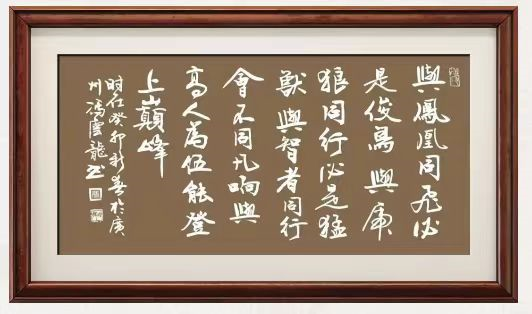 與鳳凰同飛必
是俊鳥與虎
狼同行必是猛
獸與智者同行
會不同凡响與
高人為伍能登
上巔峰
时在癸卯新春於廣
州馮雲龍书